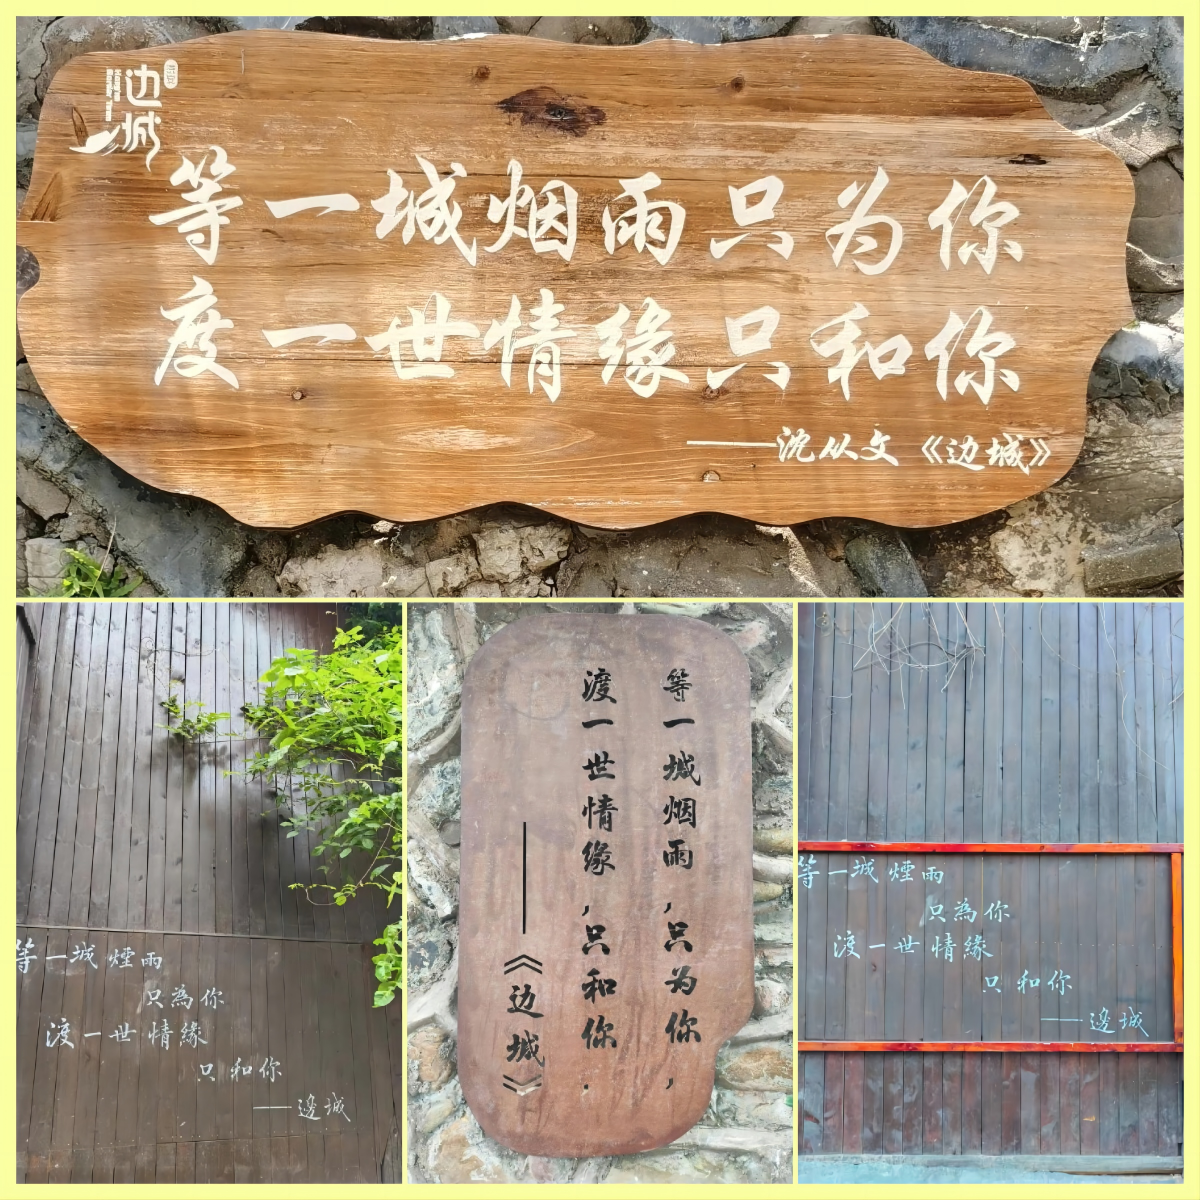 边城
等一城烟雨只为你
度一世情缘只和你
——沈从文《边城》
等一城煙雨
只為你
渡一世情緣
只和你
——邊城
等一城烟雨，只为你，
渡一世情缘，只和你．
——《边城》
等一城煙雨
只為你
渡一世情緣
只和你
——邊城